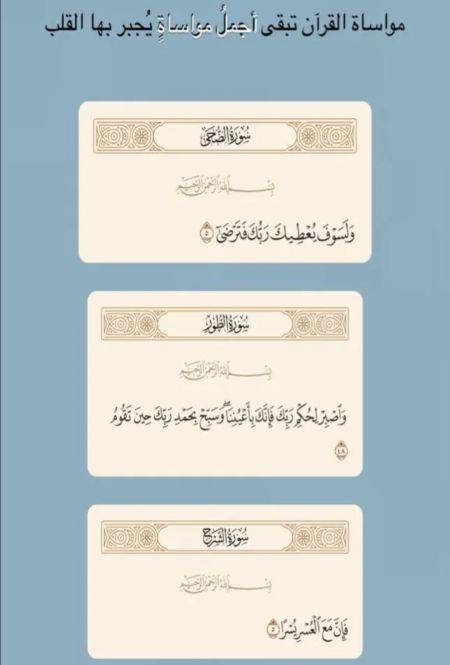 مواساة القرآن تبقى أجملُ مواساةٍ يُجبر بها القلب
سُورَةُ الضُّحَىٰ
بِسْمِ اللَّهِ الرَّحْمَٰنِ الرَّحِيمِ
وَلَسَوْفَ يُعْطِيكَ رَبُّكَ فَتَرْضَىٰٓ ٥
سُورَةُ الطُّورِ
بِسْمِ اللَّهِ الرَّحْمَٰنِ الرَّحِيمِ
وَٱصْبِرْ لِحُكْمِ رَبِّكَ فَإِنَّكَ بِأَعْيُنِنَاۖ وَسَبِّحْ بِحَمْدِ رَبِّكَ حِينَ تَقُومُ
٤٨
سُورَةُ الشَّرْحِ
بِسْمِ اللَّهِ الرَّحْمَٰنِ الرَّحِيمِ
فَإِنَّ مَعَ ٱلْعُسْرِ يُسْرًا ٥